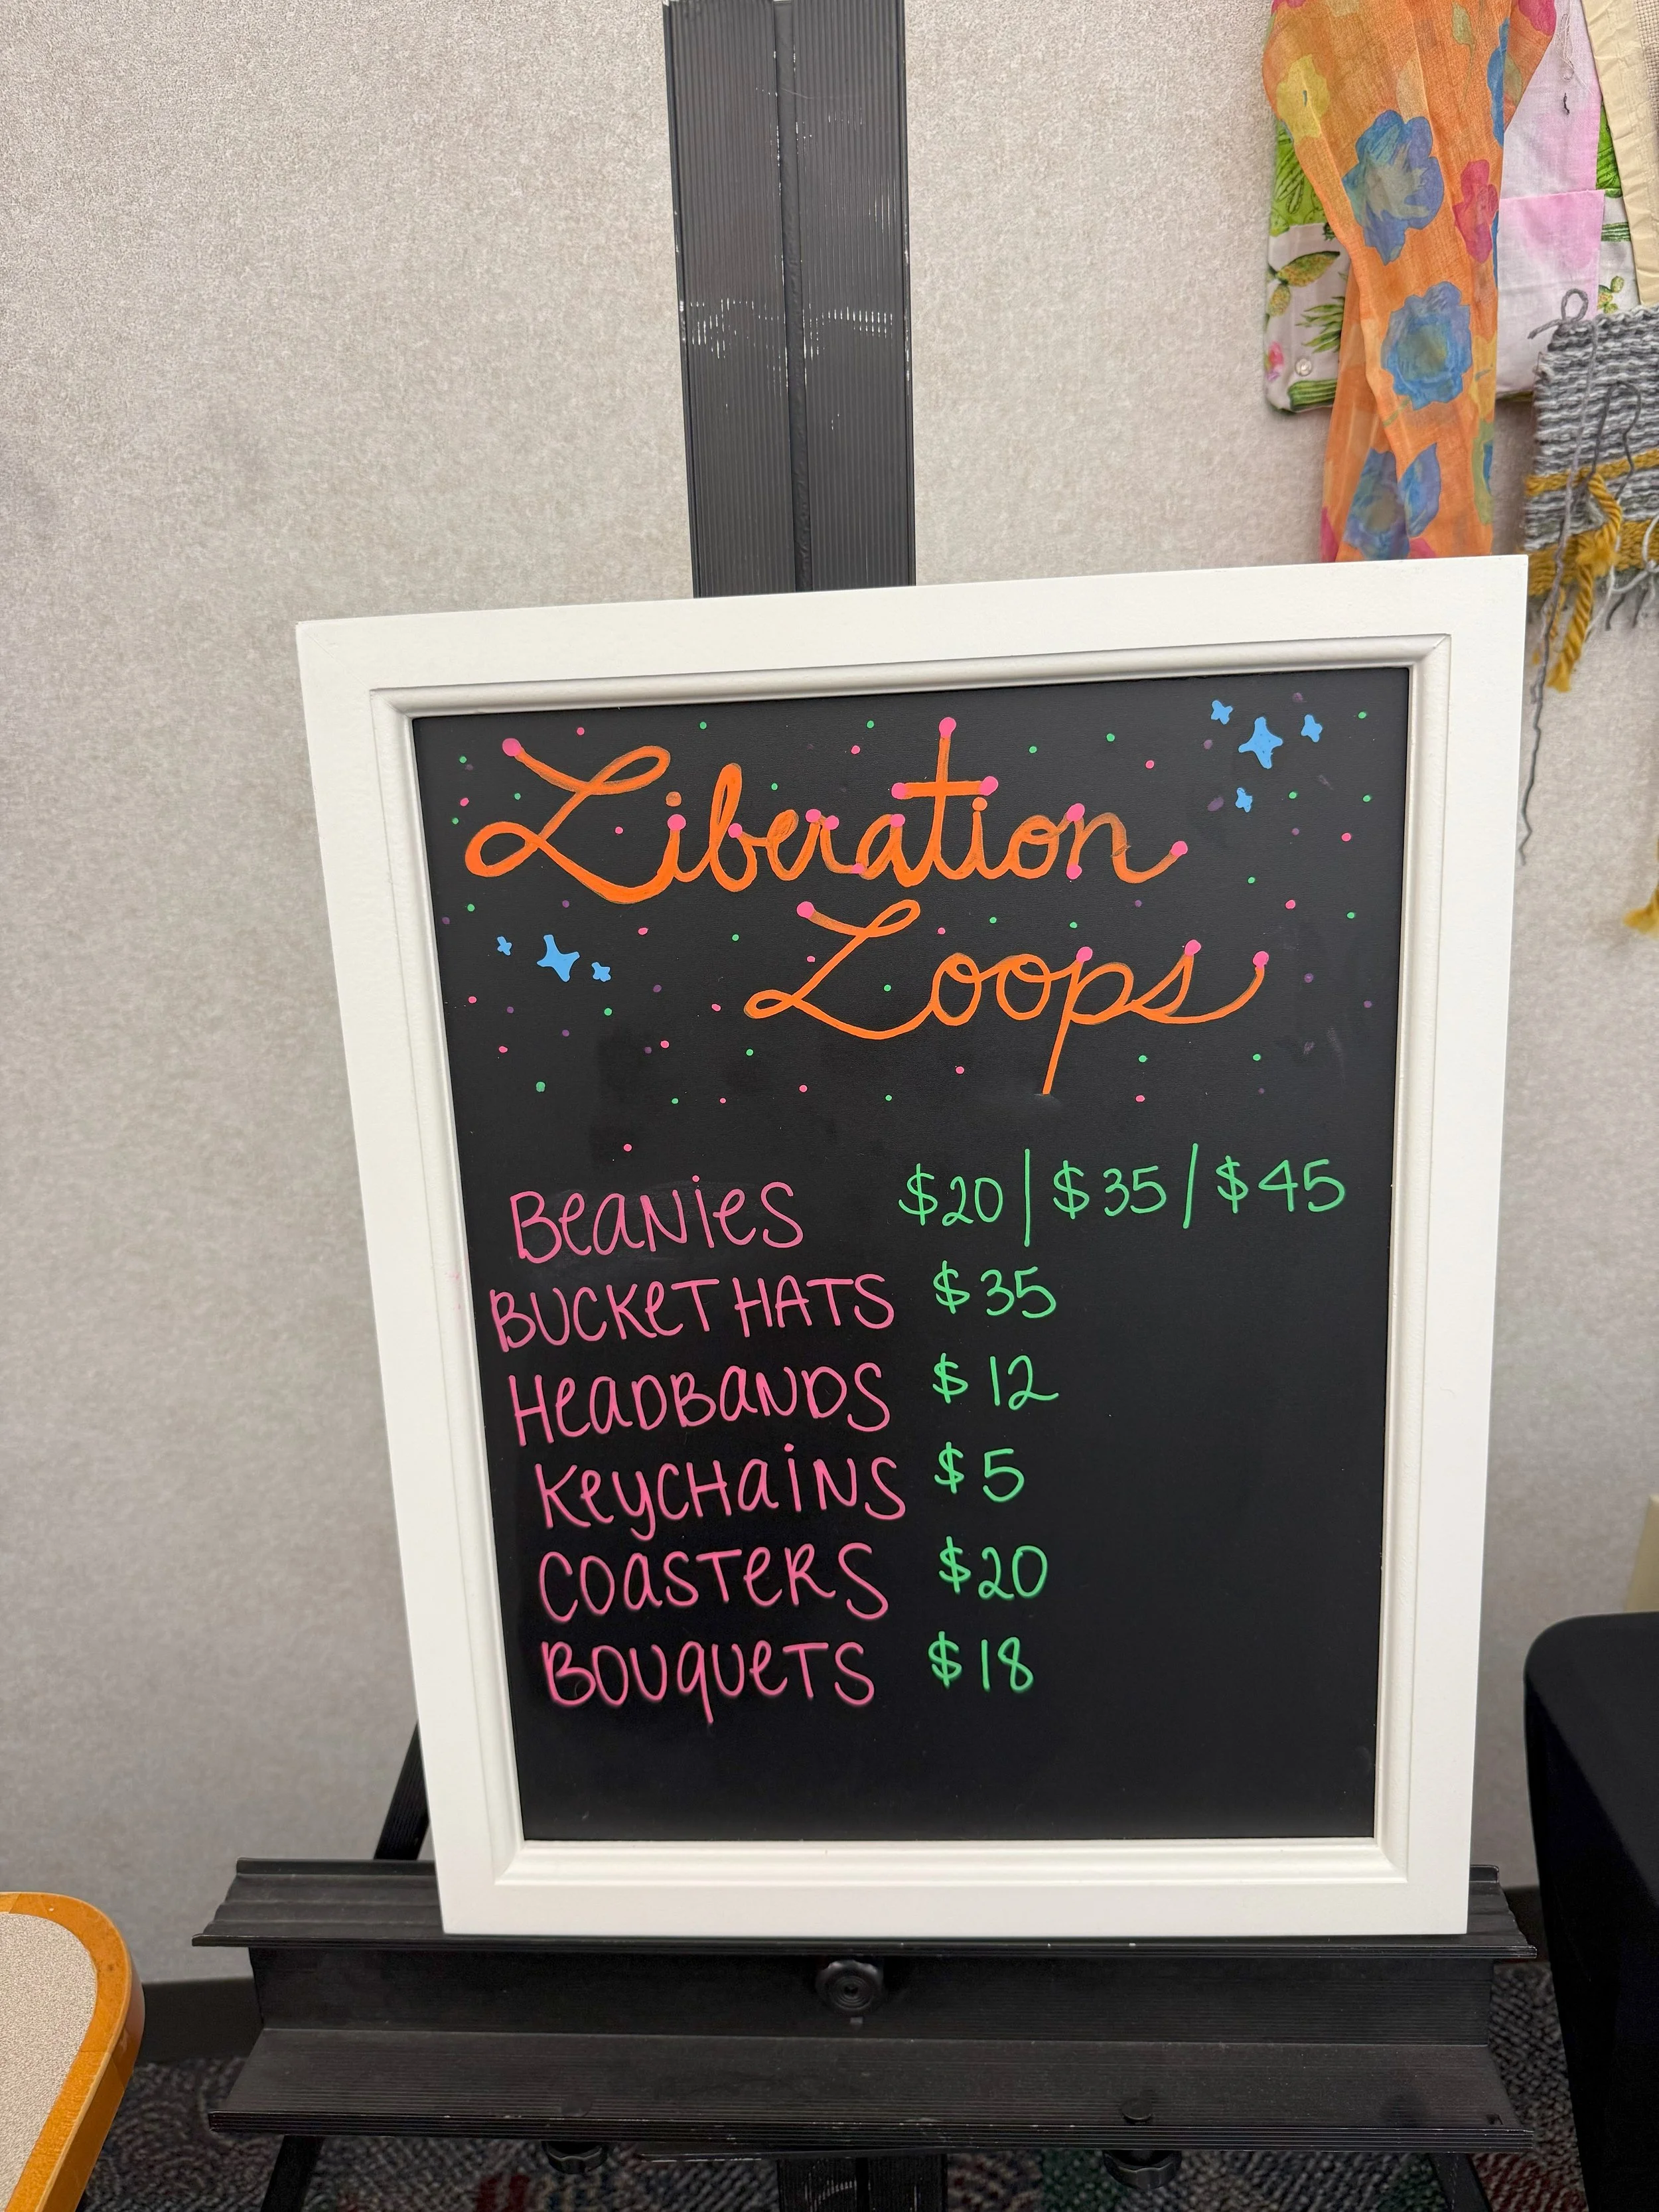 Liberation
Loops
BeaNieS $20 | $35 / $45
BUCKeT HATS $35
HeaDBaNDS $12
KeyCHaiNS $5
COaSTeRS $20
BOUqUeTS $18